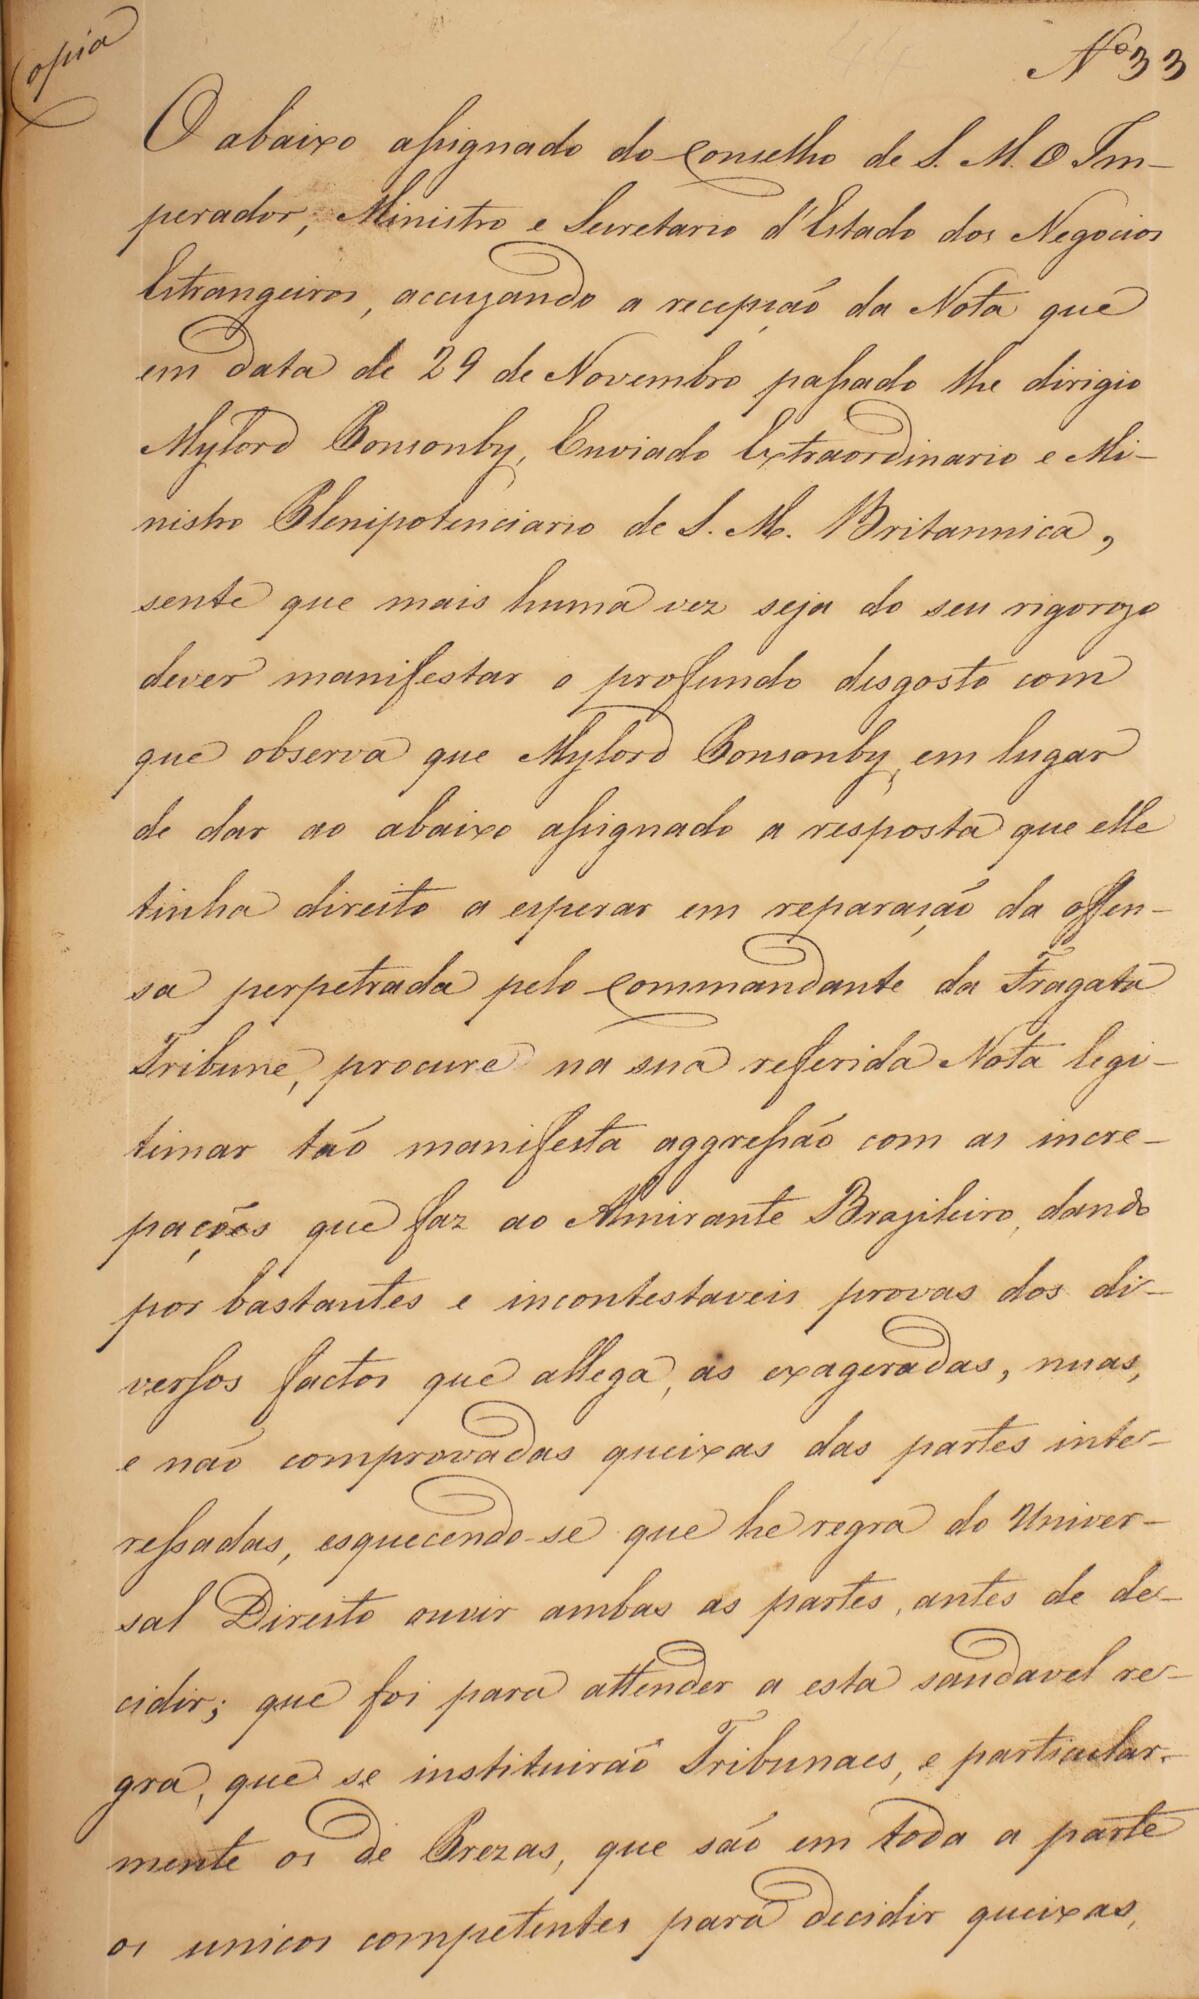 Copia
Nº 33
O abaixo assignado do Conselho de S. M. O Im-
perador, Ministro e Secretario d'Estado dos Negocios
Estrangeiros, accuzando a recepção da Nota que
em data de 29 de Novembro passado lhe dirigio
Mylord Ponsonby, Enviado Extraordinario e Mi-
nistro Plenipotenciario de S. M. Britannica,
sente que mais huma vez seja do seu rigorozo
dever manifestar o profundo disgosto com
que observa que Mylord Ponsonby, em lugar
de dar ao abaixo assignado a resposta que elle
tinha direito a esperar em reparação da offen-
sa perpetrada pelo Commandante da Fragata
Tribune, procure na sua referida Nota legi-
timar taõ manifesta aggressão com as incre-
pações que faz ao Almirante Brazileiro, dando
por bastantes e incontestaveis provas dos di-
versos factos que allega, as exageradas, nuas,
e não comprovadas queixas das partes inte-
ressadas, esquecendo-se que he regra do Univer-
sal Direito ouvir ambas as partes, antes de de-
cidir; que foi para attender a esta saudavel re-
gra, que se instituirão Tribunaes, e particular-
mente os de Prezas, que são em toda a parte
os unicos competentes para decidir queixas,